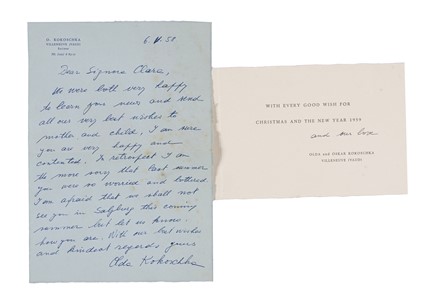 O. KOKOSCHKA
VILLENEUVE (VAUD)
6.V.58
Dear Signora Clara,
We were both very happy
to learn your news and send
all our very best wishes to
mother and child, I am sure
you are very happy and
contented. In retrospect I am
the more sorry that last summer
you were so worried and bothered.
I am afraid that we shall not
see you in Salzburg this coming
summer but let us know
how you are. With our best wishes
and kindest regards yours
Olda Kokoschka
WITH EVERY GOOD WISH FOR
CHRISTMAS AND THE NEW YEAR 1959
and our love
OLDA and OSKAR KOKOSCHKA
VILLENEUVE (VAUD)